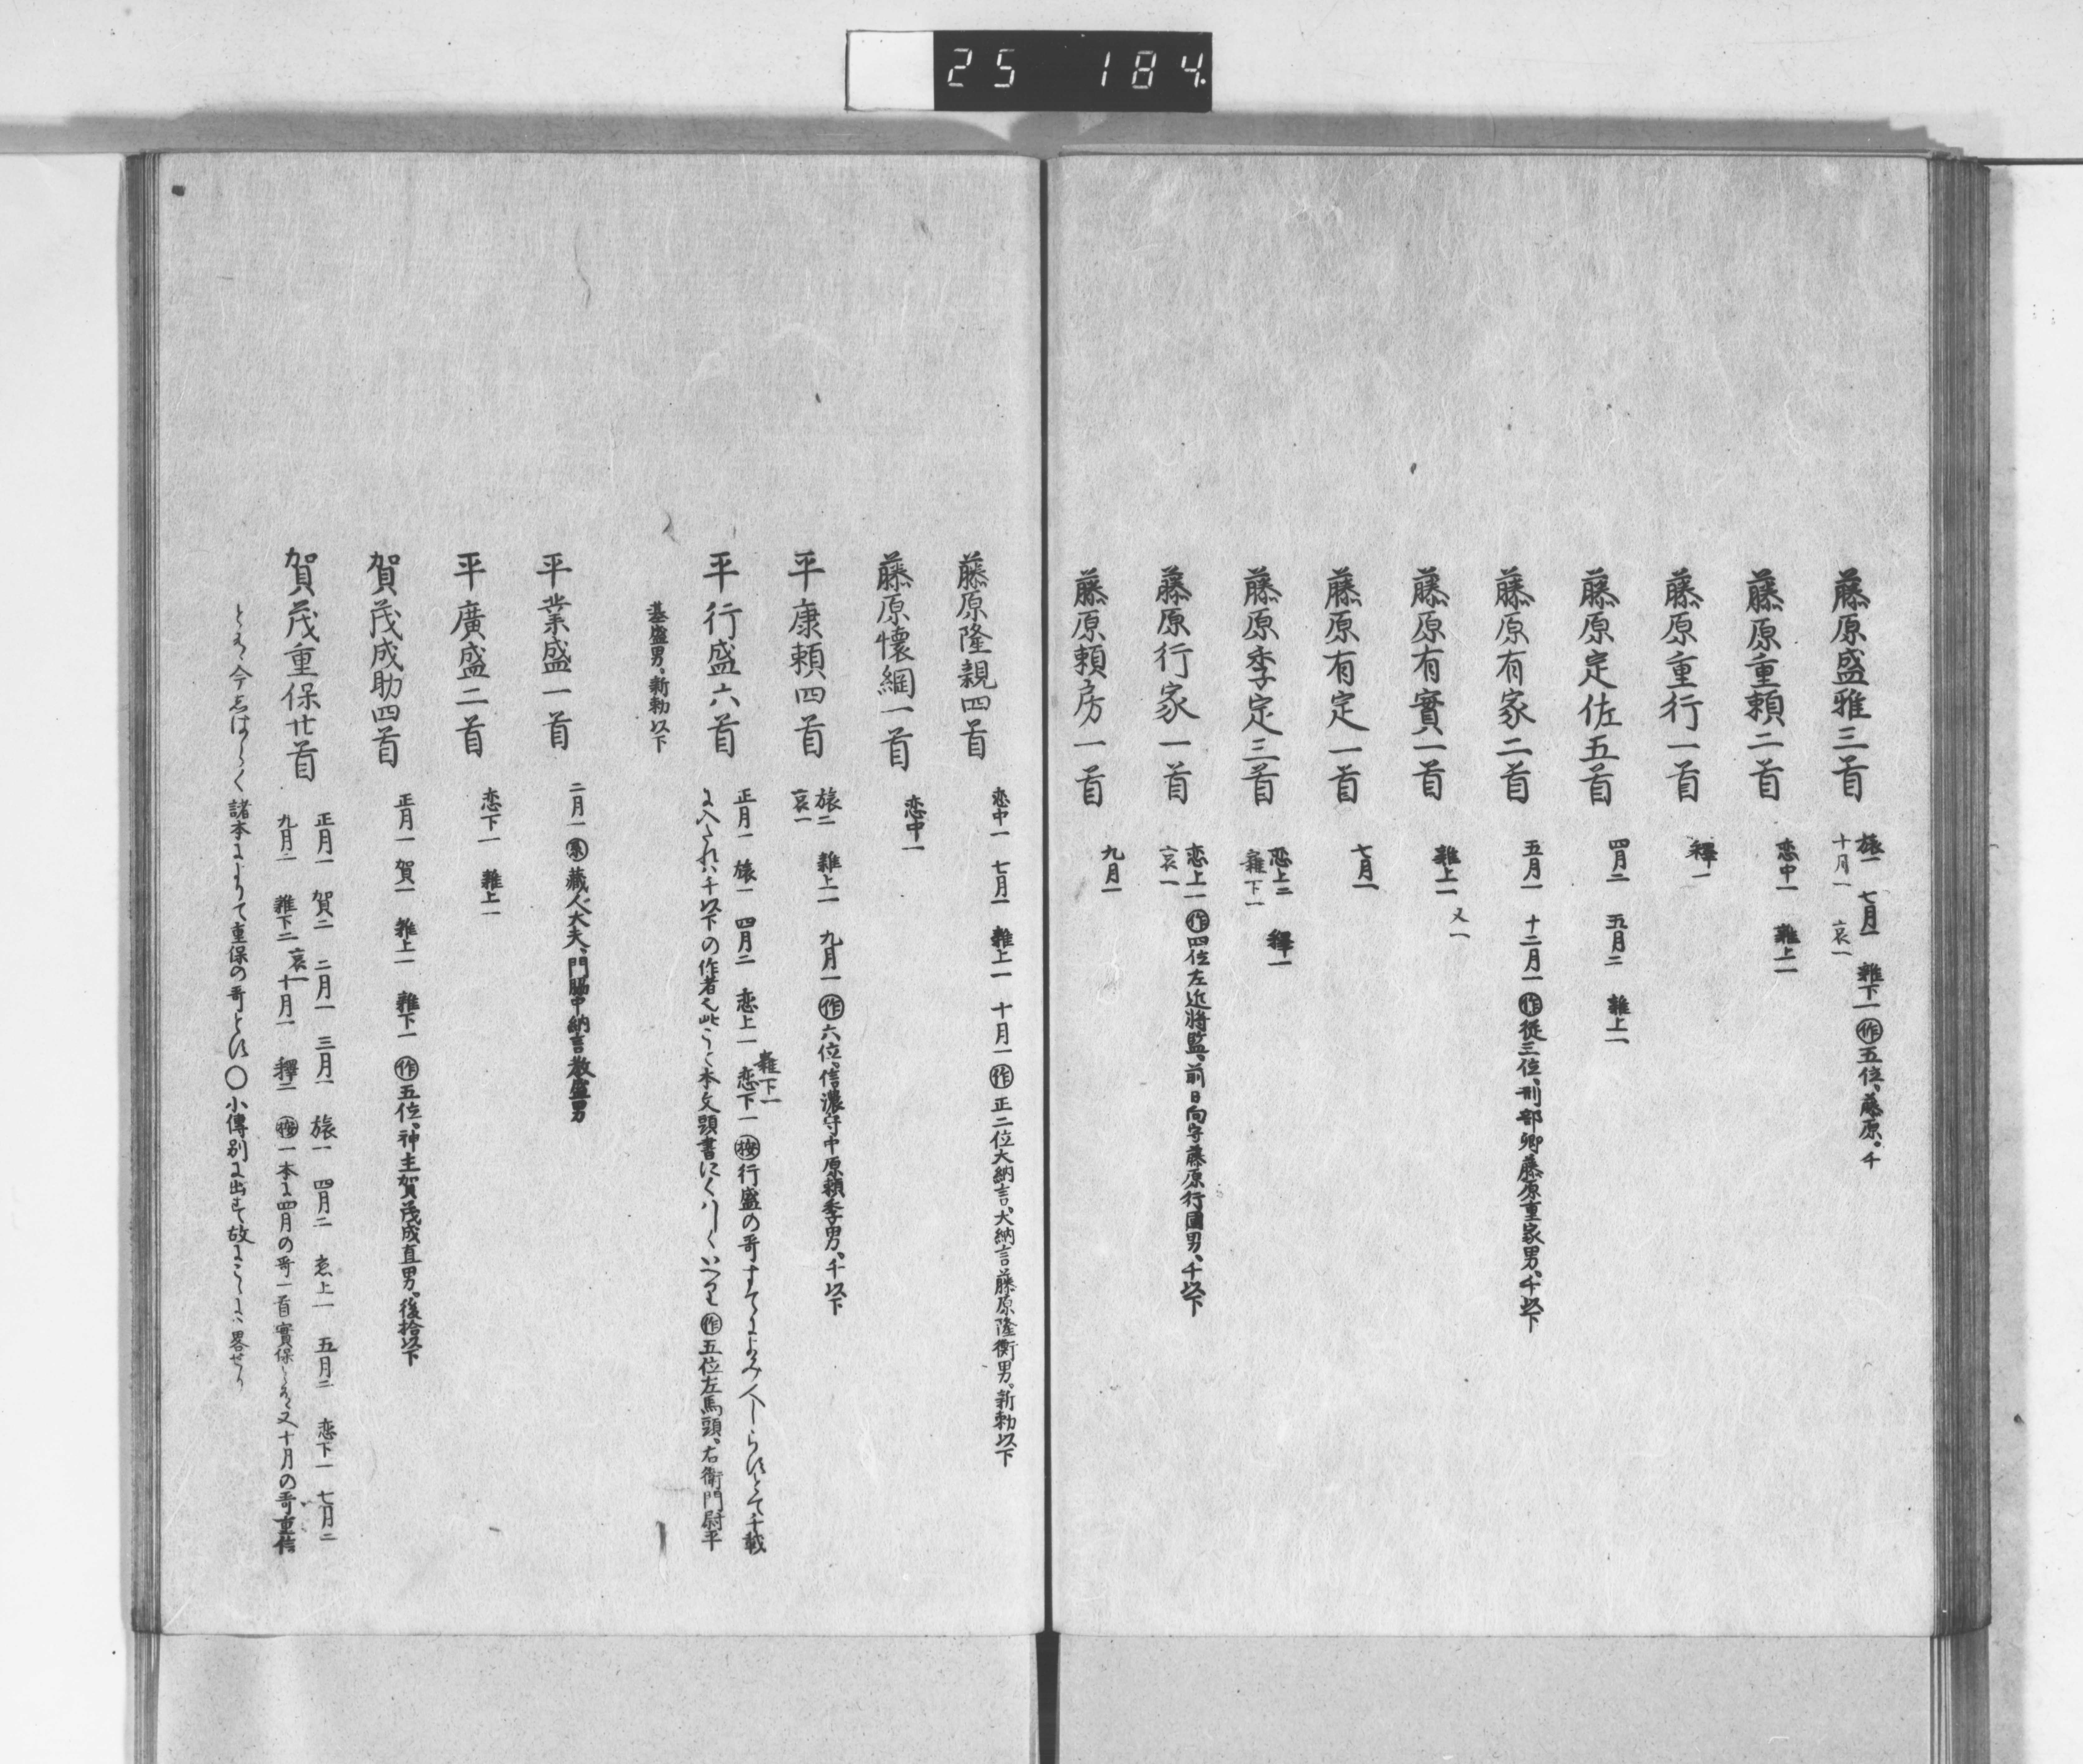 25 184.
藤原盛雅三首 旅一 七月一 雜下一 作 五位、藤原。千
十月一 哀一
藤原重頼二首 恋中一 雜上一
藤原重行一首 釋一
藤原定佐五首 四月二 五月二 雜上一
藤原有家二首 五月一 十二月一 作 從三位、刑部卿藤原重家男、千以下
藤原有實一首 雜上一 又一
藤原有定一首 七月一
藤原季定三首 恋上一 釋一
雜下一
藤原行家一首 恋上一 作 四位左近將監、前日向守藤原行國男、千以下
哀一
藤原頼房一首 九月一
藤原隆親四首 恋中一 七月一 雜上一 十月一 作 正二位大納言、大納言藤原隆衡男。新勅以下
藤原懷綱一首 恋中一
平康頼四首 旅一 雜上一 九月一 作 六位、信濃守中原頼季男、千以下
哀一
平行盛六首 正月一 旅一 四月二 恋上一 恋下一 雜下一 按 行盛の哥すてによみ人しらすとて千載
に入たれハ千以下の作者也 本文頭書にくハしくいへり 作 五位左馬頭、右衛門尉平
基盛男、新勅以下
平業盛一首 二月一 系 藏人大夫、門脇中納言教盛男
平廣盛二首 恋下一 雜上一
賀茂成助四首 正月一 賀一 雜上一 雜下一 作 五位、神主賀茂成直男、後拾以下
賀茂重保廿首 正月一 賀二 二月一 三月一 旅一 四月二 恋上一 五月二 恋下一 七月二
九月一 雜下二 哀一 十月一 釋二 按 一本に四月の哥一首實保とあり 又十月の哥重信
とあり 今しはらく諸本によりて重保の哥とす 〇小傳別に出す 故にこゝに畧せり